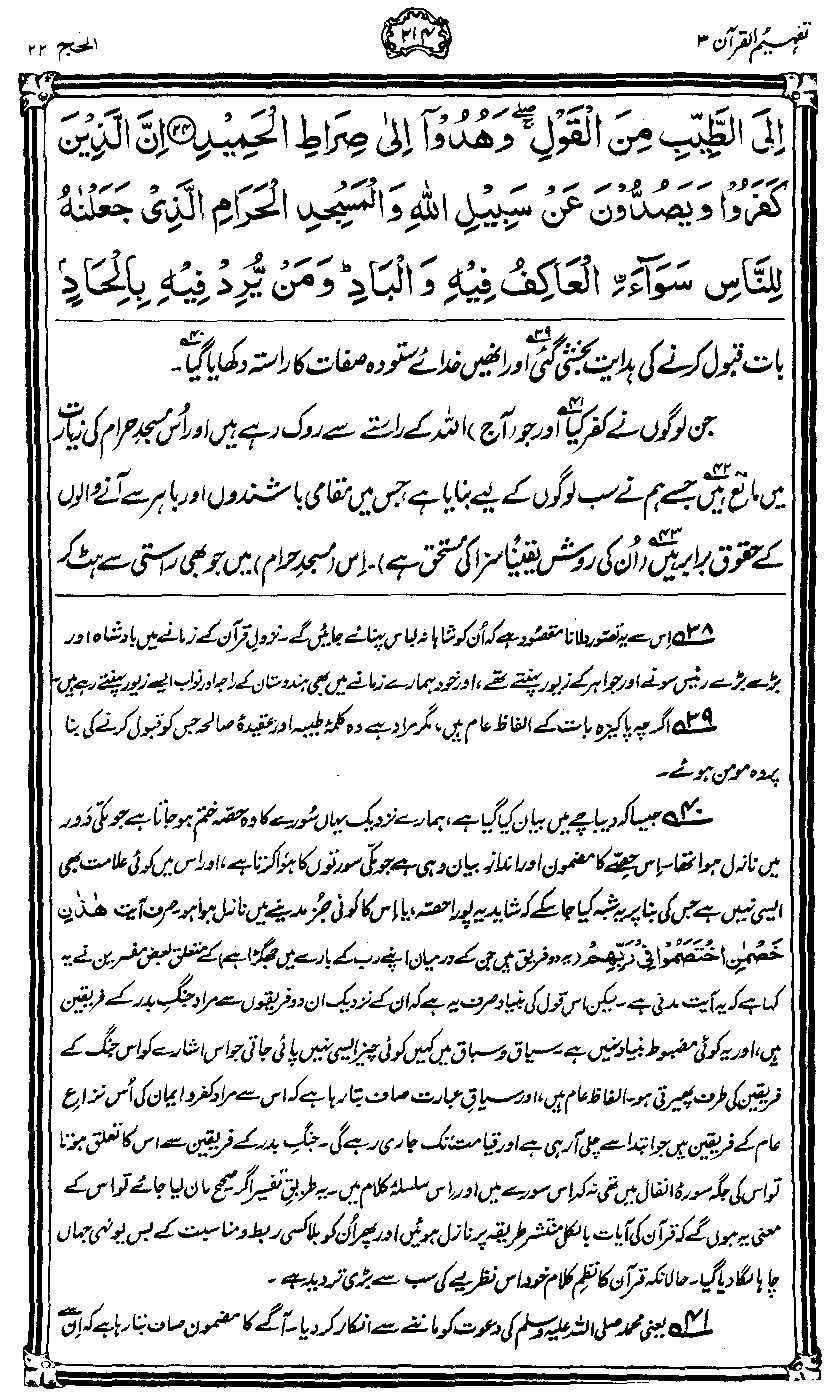 تفہیم القرآن ۳
۲۱۴
الحج ۲۲
اِلَى الطَّيِّبِ مِنَ الْقَوْلِ ۖۚ وَهُدُوْۤا اِلٰى صِرَاطِ الْحَمِيْدِ ﴿۲۴﴾ اِنَّ الَّذِيْنَ
كَفَرُوْا وَيَصُدُّوْنَ عَنْ سَبِيْلِ اللّٰهِ وَالْمَسْجِدِ الْحَرَامِ الَّذِيْ جَعَلْنٰهُ
لِلنَّاسِ سَوَآءَۨ الْعَاكِفُ فِيْهِ وَالْبَادِ ؕ وَمَنْ يُّرِدْ فِيْهِ بِاِلْحَادٍۭ
بات قبول کرنے کی ہدایت بخشی گئی۳۹ اور انھیں خدائے ستودہ صفات کا راستہ دکھایا گیا۴۰۔
جن لوگوں نے کفر کیا۴۱ اور جو (آج) اللہ کے راستے سے روک رہے ہیں اور اُس مسجدِ حرام کی زیارت
میں مانع ہیں۴۲ جسے ہم نے سب لوگوں کے لیے بنایا ہے، جس میں مقامی باشندوں اور باہر سے آنے والوں
کے حقوق برابر ہیں۴۳ (اُن کی روش یقیناً سزا کی مستحق ہے)۔ اِس (مسجدِ حرام) میں جو بھی راستی سے ہٹ کر
۳۸ اِس سے یہ تصور دلانا مقصود ہے کہ اُن کو شاہانہ لباس پہنائے جائیں گے۔ نزولِ قرآن کے زمانے میں بادشاہ اور
بڑے بڑے رئیس سونے اور جواہر کے زیور پہنتے تھے، اور خود ہمارے زمانے میں بھی ہندوستان کے راجہ اور نواب ایسے زیور پہنتے رہے ہیں۔
۳۹ اگرچہ پاکیزہ بات کے الفاظ عام ہیں، مگر مراد ہے وہ کلمۂ طیبہ اور عقیدۂ صالحہ جس کو قبول کرنے کی بنا
پر وہ مومن ہوئے۔
۴۰ جیسا کہ دیباچے میں بیان کیا گیا ہے، ہمارے نزدیک یہاں سُورے کا وہ حصہ ختم ہو جاتا ہے جو مکی دَور
میں نازل ہوا تھا۔ اِس حِصّے کا مضمون اور اندازِ بیان وہی ہے جو مکی سورتوں کا ہُوا کرتا ہے، اور اس میں کوئی علامت بھی
ایسی نہیں ہے جس کی بنا پر یہ شبہ کیا جا سکے کہ شاید یہ پورا حصہ، یا اِس کا کوئی جُز مدینے میں نازل ہوا ہو۔ صرف آیت هٰذٰنِ
خَصْمٰنِ اخْتَصَمُوْا فِيْ رَبِّهِمْ (یہ دو فریق ہیں جن کے درمیان اپنے رب کے بارے میں جھگڑا ہے) کے متعلق بعض مفسرین نے یہ
کہا ہے کہ یہ آیت مدنی ہے۔ لیکن اس قول کی بنیاد صرف یہ ہے کہ ان کے نزدیک ان دو فریقوں سے مراد جنگِ بدر کے فریقین
ہیں، اور یہ کوئی مضبوط بنیاد نہیں ہے۔ سیاق و سباق میں کہیں کوئی چیز ایسی نہیں پائی جاتی جو اس اشارے کو اس جنگ کے
فریقین کی طرف پھیرتی ہو۔ الفاظ عام ہیں، اور سیاقِ عبارت صاف بتا رہا ہے کہ اس سے مراد کفر و ایمان کی اُس نزاعِ
عام کے فریقین ہیں جو ابتدا سے چلی آ رہی ہے اور قیامت تک جاری رہے گی۔ جنگِ بدر کے فریقین سے اس کا تعلق ہوتا
تو اس کی جگہ سورۂ انفال میں تھی نہ کہ اس سورے میں اور اِس سلسلۂ کلام میں۔ یہ طریقِ تفسیر اگر صحیح مان لیا جائے تو اس کے
معنی یہ ہوں گے کہ قرآن کی آیات بالکل منتشر طریقہ پر نازل ہوئیں اور پھر اُن کو بلا کسی ربط و مناسبت کے بس یونہی جہاں
چاہا لگا دیا گیا۔ حالانکہ قرآن کا نظمِ کلام خود اس نظریے کی سب سے بڑی تردید ہے۔
۴۱ یعنی محمد صلی اللہ علیہ وسلم کی دعوت کو ماننے سے انکار کر دیا۔ آگے کا مضمون صاف بتا رہا ہے کہ اِن سے